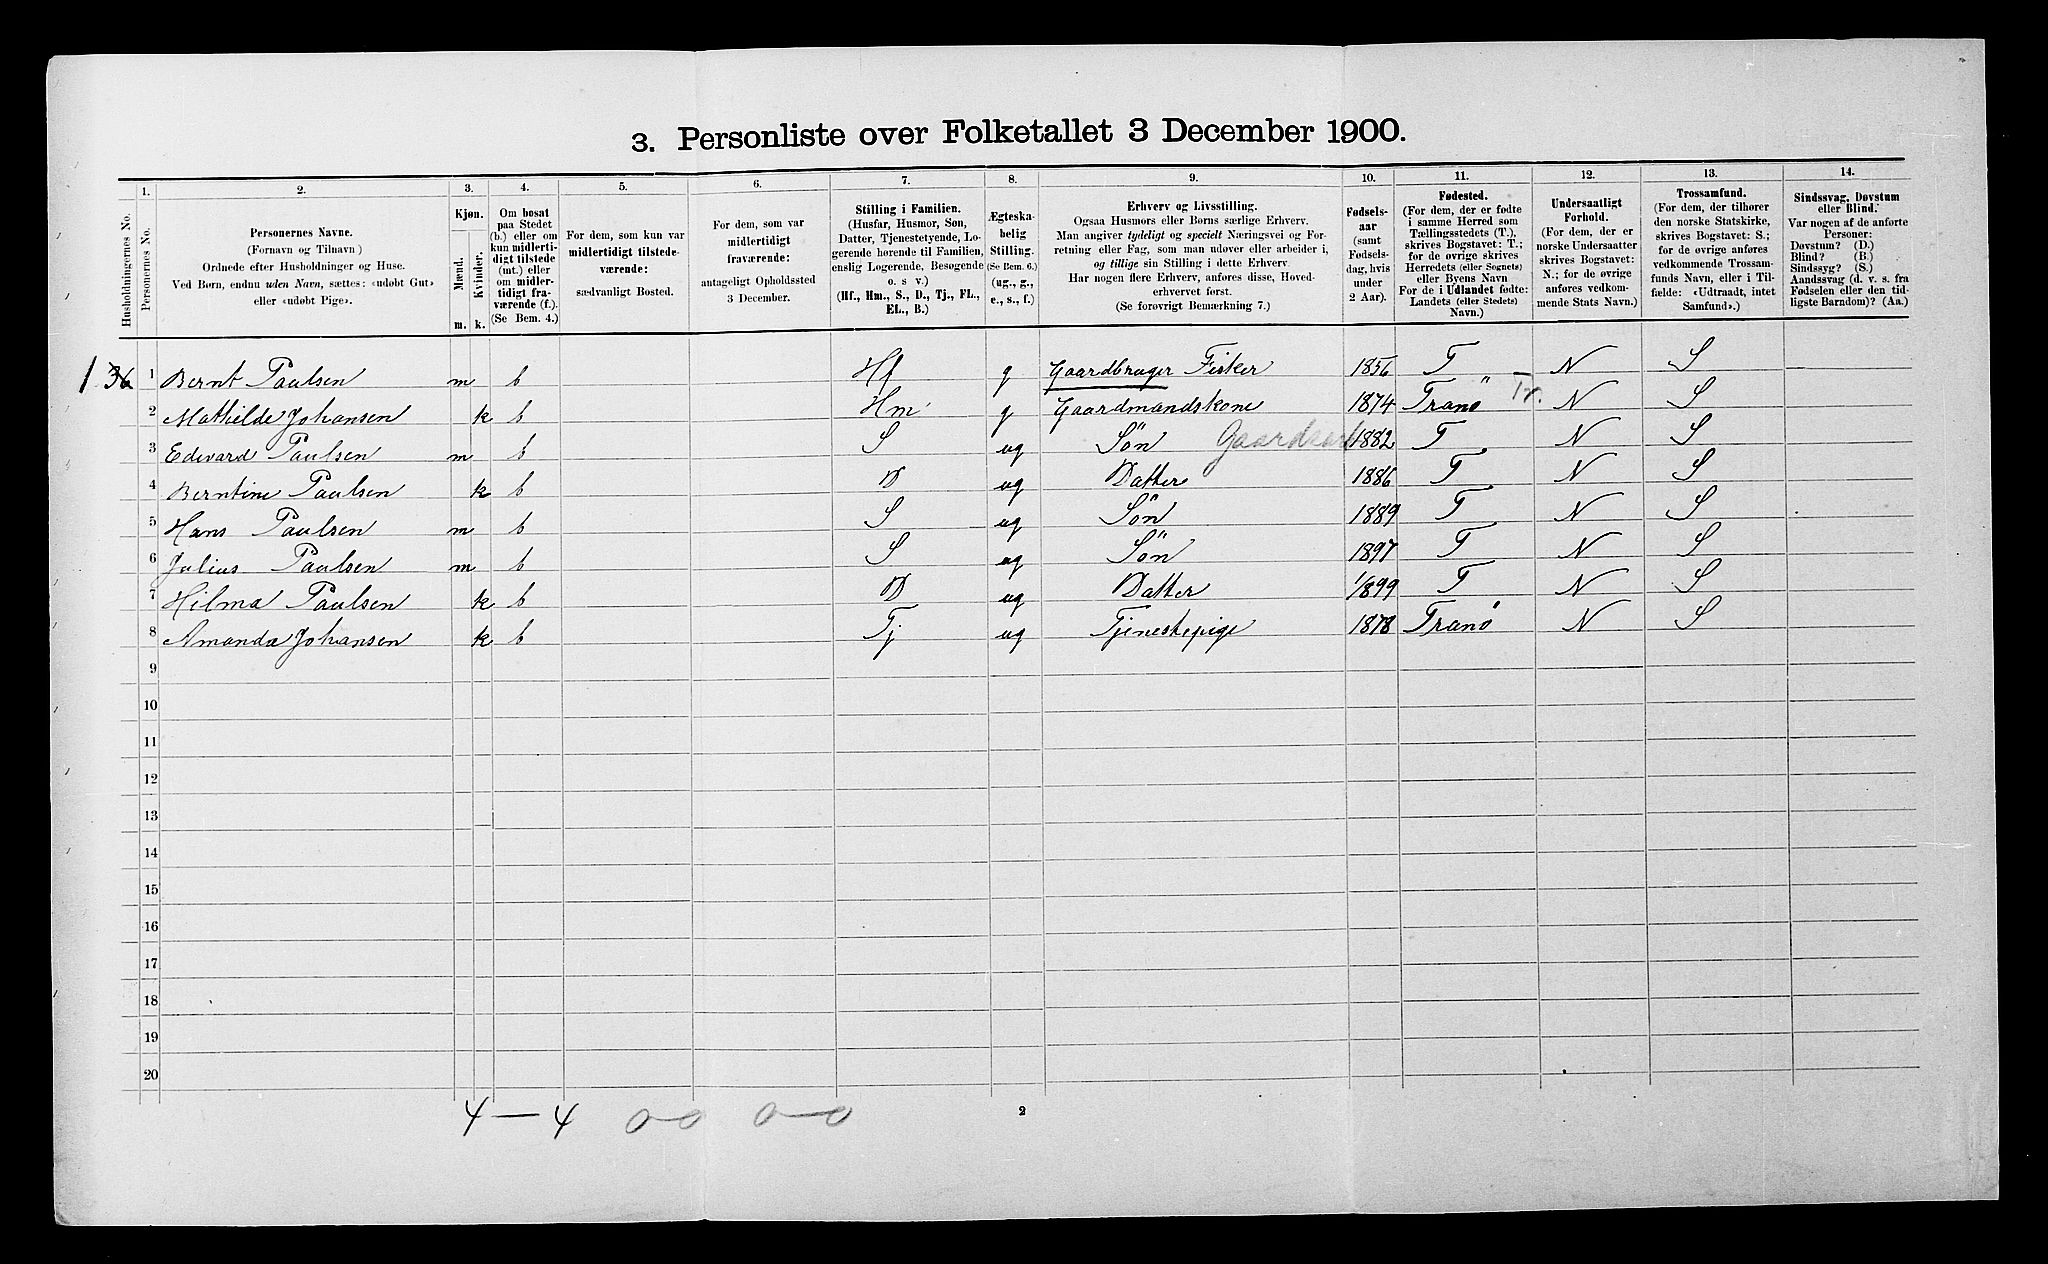 3. Personliste over Folketallet 3 December 1900.
1. 2. 3. 4. 5. 6. 7. 8. 9. 10. 11. 12. 13. 14.
Husholdningernes No.
Personernes No.
Personernes Navne.
(Fornavn og Tilnavn)
Ordnede efter Husholdninger og Huse.
Ved Børn, endnu uden Navn, sættes: «udøbt Gut»
eller «udøbt Pige».
Kjøn.
Mænd.
Kvinder.
m. k.
Om bosat
paa Stedet
(b.) eller om
kun midlerti-
digt tilstede
(mt.) eller
om midler-
tidigt fra-
værende (f.).
(Se Bem. 4.)
For dem, som kun var
midlertidigt tilstede-
værende:
sædvanligt Bosted.
For dem, som var
midlertidigt
fraværende:
antageligt Opholdssted
3 December.
Stilling i Familien.
(Husfar, Husmor, Søn,
Datter, Tjenestetyende, Lo-
gerende hørende til Familien,
enslig Logerende, Besøgende
o. s. v.)
(Hf., Hm., S., D., Tj., FL.,
EL., B.)
Ægteska-
belig
Stilling.
(Se Bem. 6.)
(ug., g.,
e., s., f.)
Erhverv og Livsstilling.
Ogsaa Husmors eller Børns særlige Erhverv.
Man angiver tydeligt og specielt Næringsvei og For-
retning eller Fag, som man udøver eller arbeider i,
og tillige sin Stilling i dette Erhverv.
Har nogen flere Erhverv, anføres disse, Hoved-
erhvervet først.
(Se forøvrigt Bemærkning 7.)
Fødsels-
aar
(samt
Fødsels-
dag, hvis
under
2 Aar).
Fødested.
(For dem, der er fødte
i samme Herred som
Tællingsstedets (T.),
skrives Bogstavet: T.;
for de øvrige skrives
Herredets (eller Sognets)
eller Byens Navn
For de i Udlandet fødte:
Landets (eller Stedets)
Navn.)
Undersaatligt
Forhold.
(For dem, der er
norske Undersaatter
skrives Bogstavet:
N.; for de øvrige
anføres vedkom-
mende Stats Navn.)
Trossamfund.
(For dem, der tilhører
den norske Statskirke,
skrives Bogstavet: S.;
for de øvrige anføres
vedkommende Trossam-
funds Navn, eller i Til-
fælde: «Udtraadt, intet
Samfund».)
Sindssvag, Døvstum
eller Blind.
Var nogen af de anførte
Personer:
Døvstum? (D.)
Blind? (B.)
Sindssyg? (S.)
Aandssvag (d. v. s. fra
Fødselen eller den tid-
ligste Barndom)? (Aa.)
1 36 1 Bernt Paulsen m b Hf g Gaardbruger Fisker 1856 T N S
2 Mathilde Johansen k b Hm g Gaardmandskone 1874 Tranö Tr. N S
3 Edevard Paulsen m b S ug Sön 1882 T N S
4 Berntine Paulsen k b D ug Datter 1886 T N S
5 Hans Paulsen m b S ug Sön 1889 T N S
6 Julius Paulsen m b S ug Sön 1897 T N S
7 Hilma Paulsen k b D ug Datter 1899 T N S
8 Amanda Johansen k b Tj ug Tjenestepige 1878 Tranö N S
9
10
11
12
13
14
15
16
17
18
19
20
4 — 4 0—0 0—0
2